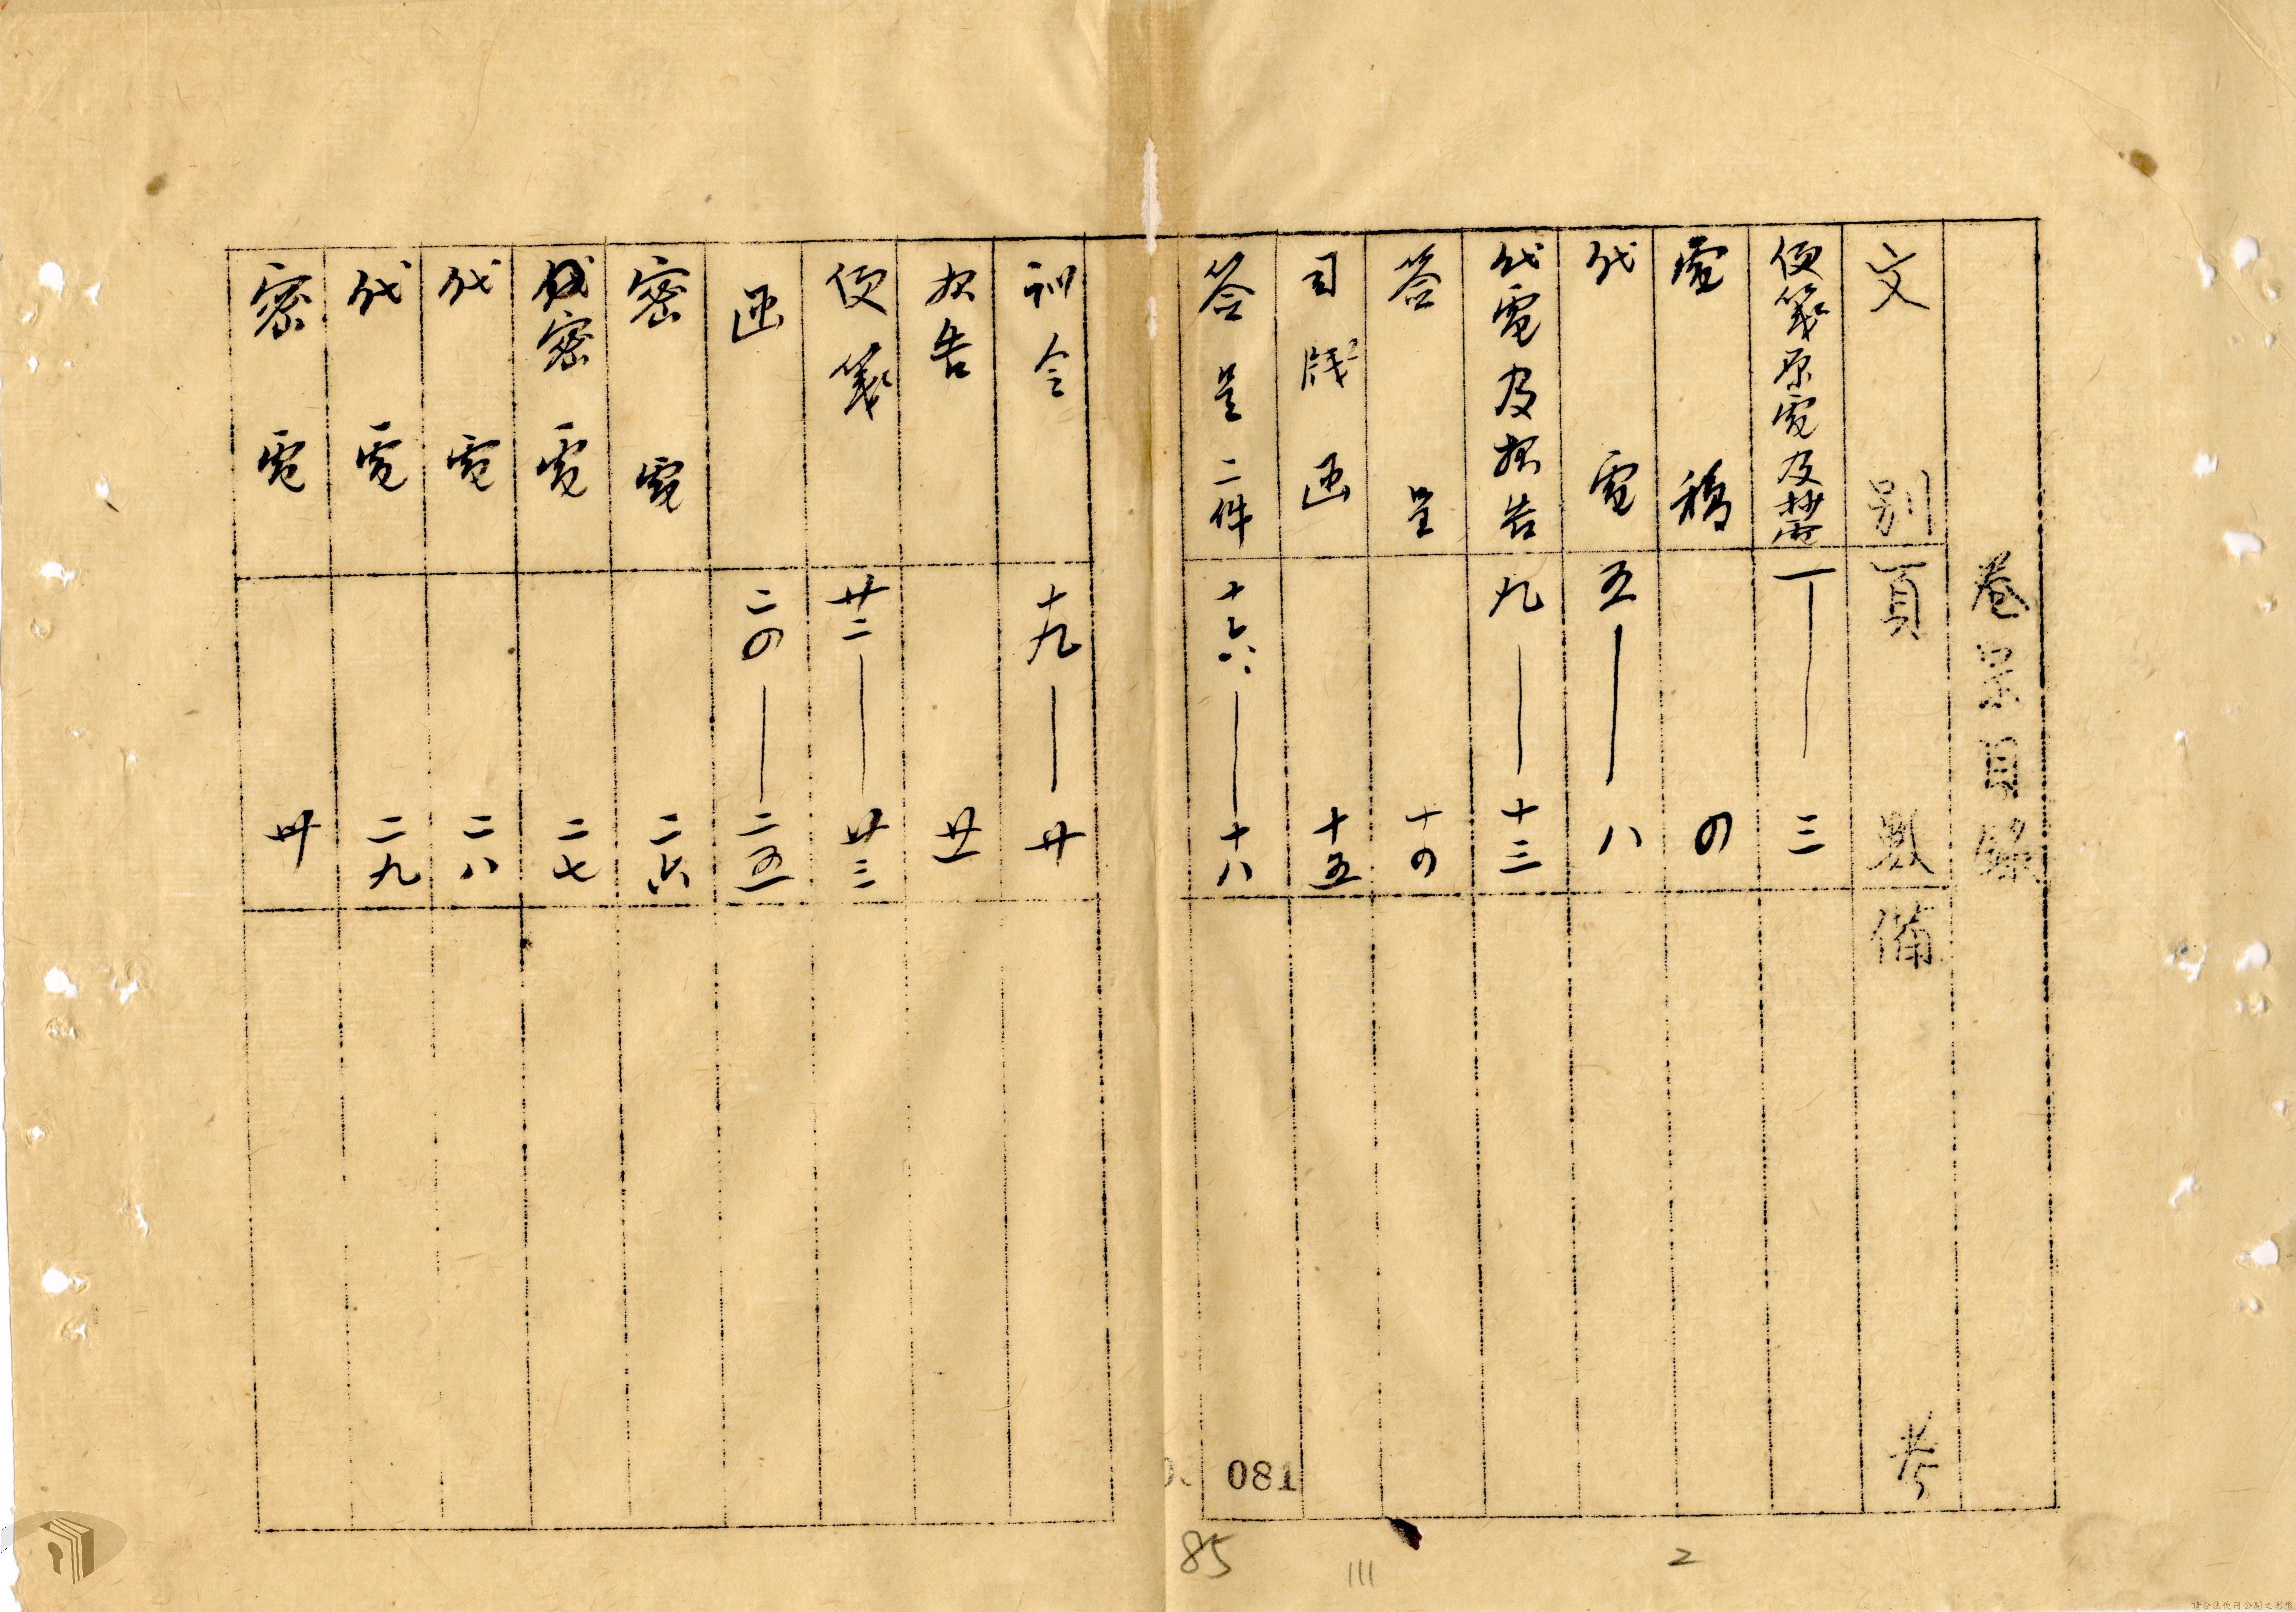 卷宗目錄
文別 頁數 備考
便箋原電及
一——三
電稿 四
代電 五——八
代電及报告 九——十三
签呈 十四
司牋函 十五
签呈二件 十六——十八
训令 十九——廿
报告 廿一
便箋 廿二——廿三
函 二四——二五
密電 二六
密電 二七
代電 二八
代電 二九
密電 卅
081
85
111
2
請合法使用公開之影像